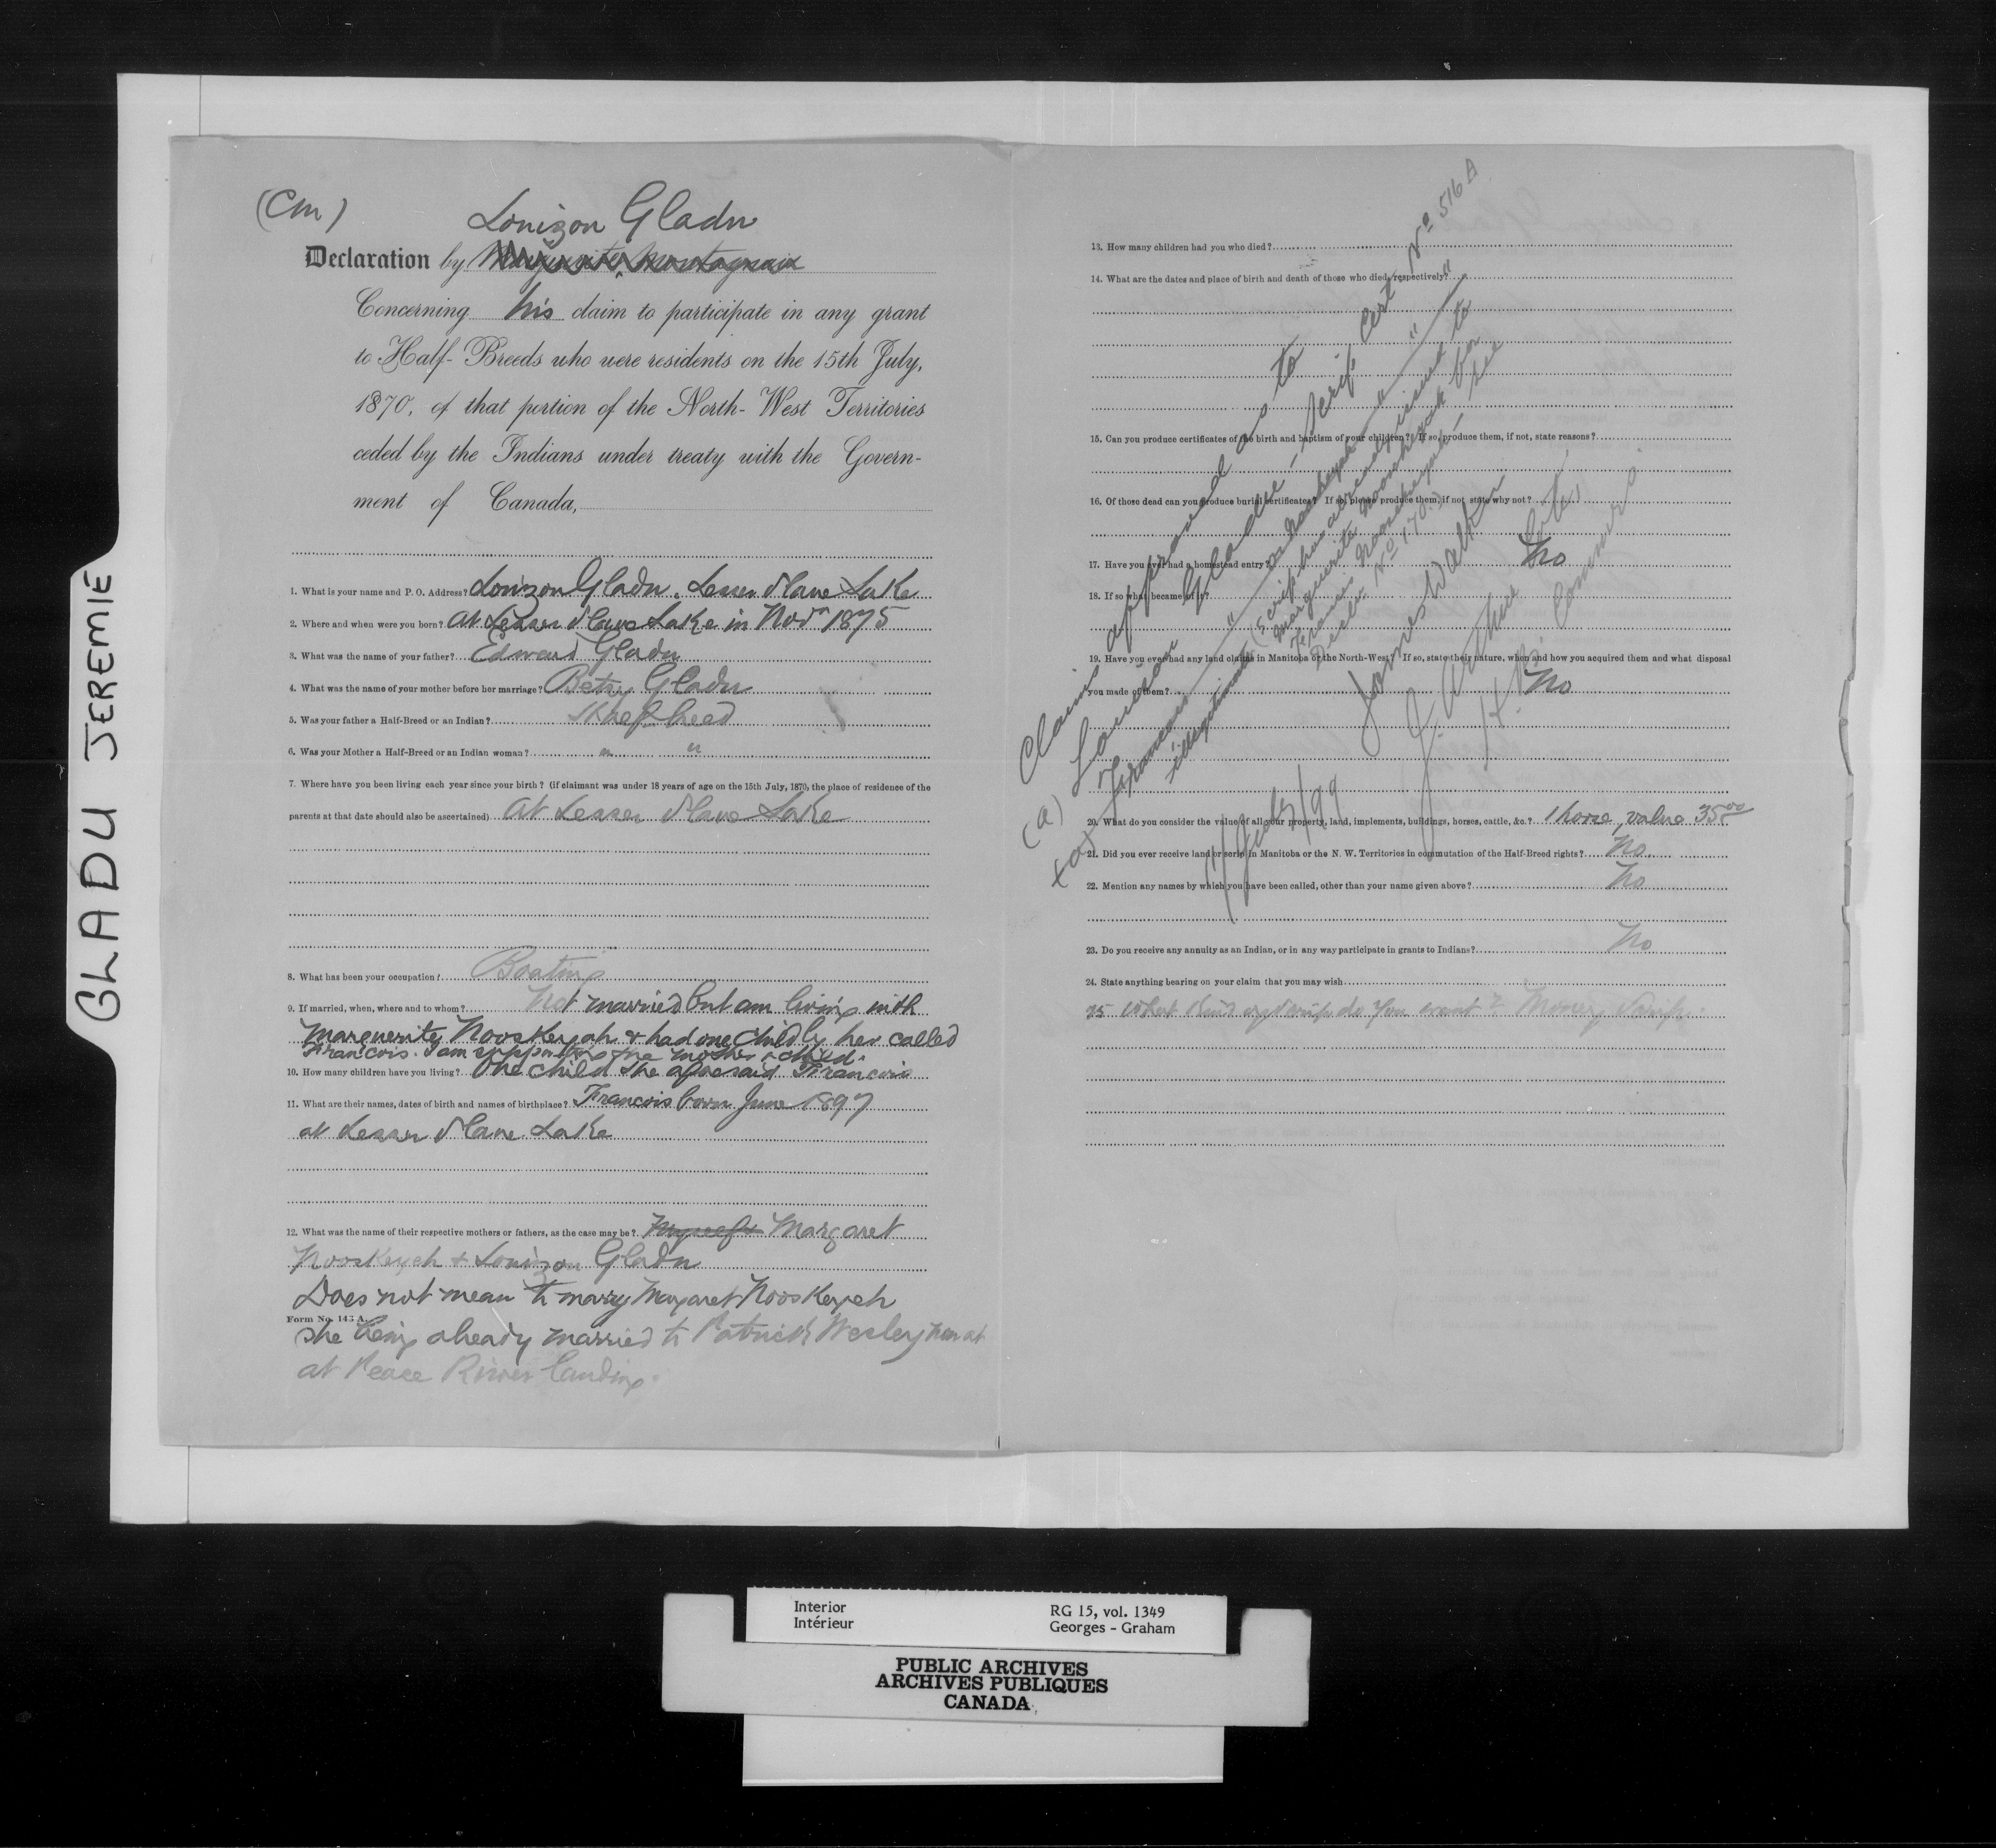 GLADU JEREMIE
(Cm)
Louizon Gladu
Declaration by
Concerning his claim to participate in any grant
to Half-Breeds who were residents on the 15th July,
1870, of that portion of the North-West Territories
ceded by the Indians under treaty with the Govern-
ment of Canada,
1. What is your name and P. O. Address? Louizon Gladu. Lesser Slave Lake
2. Where and when were you born? At Lesser Slave Lake in Novr 1875
3. What was the name of your father? Edward Gladu
4. What was the name of your mother before her marriage? Betsy Gladu
5. Was your father a Half-Breed or an Indian? Half breed
6. Was your Mother a Half-Breed or an Indian woman? " "
7. Where have you been living each year since your birth? (if claimant was under 18 years of age on the 15th July, 1870, the place of residence of the
parents at that date should also be ascertained) At Lesser Slave Lake
8. What has been your occupation? Boating
9. If married, when, where and to whom? Not married but am living with
Marguerite Nooskeyah & had one child by her called
Francois. I am supporting the mother & child.
10. How many children have you living? One child the aforesaid Francois
11. What are their names, dates of birth and names of birthplace? Francois born June 1897
at Lesser Slave Lake
12. What was the name of their respective mothers or fathers, as the case may be? Myself & Margaret
Nooskeyeh & Louizon Gladu
Does not mean to marry Margaret Nooskeyeh
Form No. 143 A.
She being already married to Patrick Wesley now at
at Peace River Landing.
13. How many children had you who died?
14. What are the dates and place of birth and death of those who died, respectively?
15. Can you produce certificates of the birth and baptism of your children? If so, produce them, if not, state reasons?
16. Of those dead can you produce burial certificates? If so, please produce them, if not state why not?
17. Have you ever had a homestead entry? No
18. If so what became of it?
19. Have you ever had any land claims in Manitoba or the North-West? If so, state their nature, when and how you acquired them and what disposal
you made of them? No
20. What do you consider the value of all your property, land, implements, buildings, horses, cattle, &c.? 1 horse, value 35.00
21. Did you ever receive land or scrip in Manitoba or the N. W. Territories in commutation of the Half-Breed rights? No.
22. Mention any names by which you have been called, other than your name given above? No
23. Do you receive any annuity as an Indian, or in any way participate in grants to Indians? No
24. State anything bearing on your claim that you may wish
25 What kind of scrip do you want? Money Scrip.
Claim approved as to
(a) Louison Gladue - Scrip Cert. No 516 A
(a) Francois " " "
illegitimate (Scrip has already issued to
Marguerite for
Francois see
Decln No 170.)
James Walker
J. Arthur Coté,
H.B. Commrs.
11 July/99
Interior
Intérieur
RG 15, vol. 1349
Georges - Graham
PUBLIC ARCHIVES
ARCHIVES PUBLIQUES
CANADA